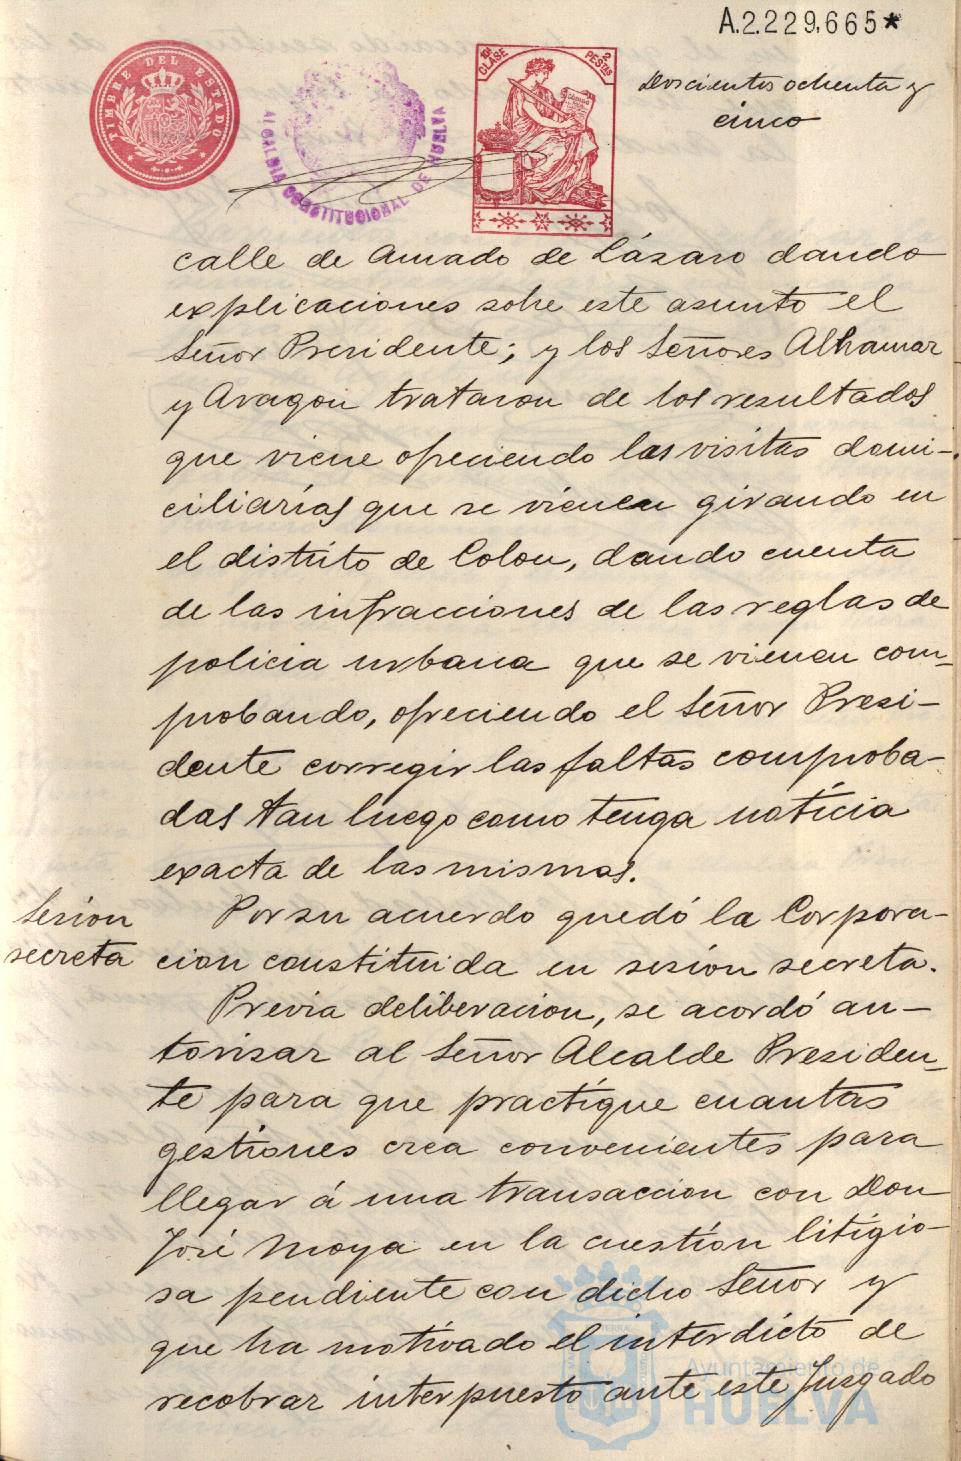 A.2.229,665*
TIMBRE DEL ESTADO
ALCALDIA CONSTITUCIONAL DE HUELVA
10ª CLASE
2 PESTAS
Doscientos ochenta y
cinco
calle de Amado de Lázaro dando
explicaciones sobre este asunto el
Señor Presidente; y los Señores Alhamar
y Aragon trataron de los resultados
que viene ofreciendo las visitas domi-
ciliarias que se vienen girando en
el distrito de Colon, dando cuenta
de las infracciones de las reglas de
policia urbana que se vienen com-
probando, ofreciendo el Señor Presi-
dente corregir las faltas comproba-
das tan luego como tenga noticia
exacta de las mismas.
Sesion
secreta
Por su acuerdo quedó la Corpora-
cion constituida en sesion secreta.
Previa deliberacion, se acordó au-
torisar al Señor Alcalde Presiden-
te para que practique cuantas
gestiones crea convenientes para
llegar á una transaccion con Don
José Moya en la cuestion litigio-
sa pendiente con dicho Señor y
que ha motivado el interdicto de
recobrar interpuesto ante este Juzgado
Ayuntamiento de
HUELVA